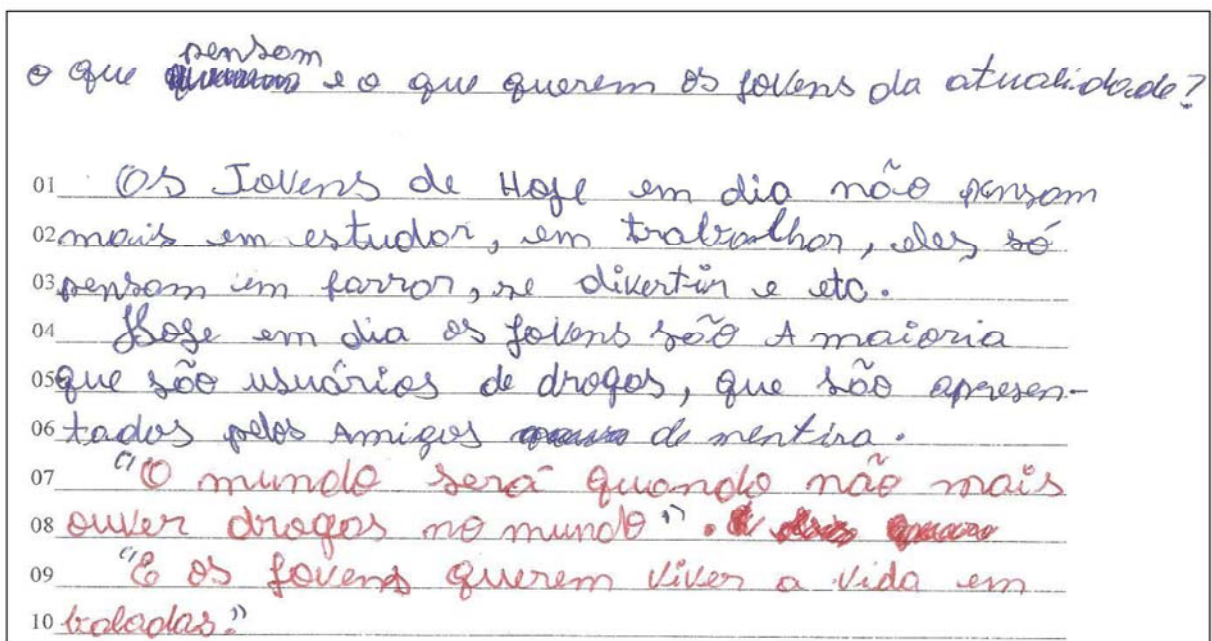 pensam
o que e o que querem os jovens da atualidade?
01 Os Jovens de Hoje em dia não pensam
02 mais em estudar, em trabalhar, eles só
03 pensam em farrar, se divertir e etc.
04 Hoje em dia os jovens são A maioria
05 que são usuários de drogas, que são apresen-
06 tados pelos Amigos de mentira.
07 "O mundo será quando não mais
08 ouver drogas no mundo".
09 "E os jovens querem viver a vida em
10 baladas."